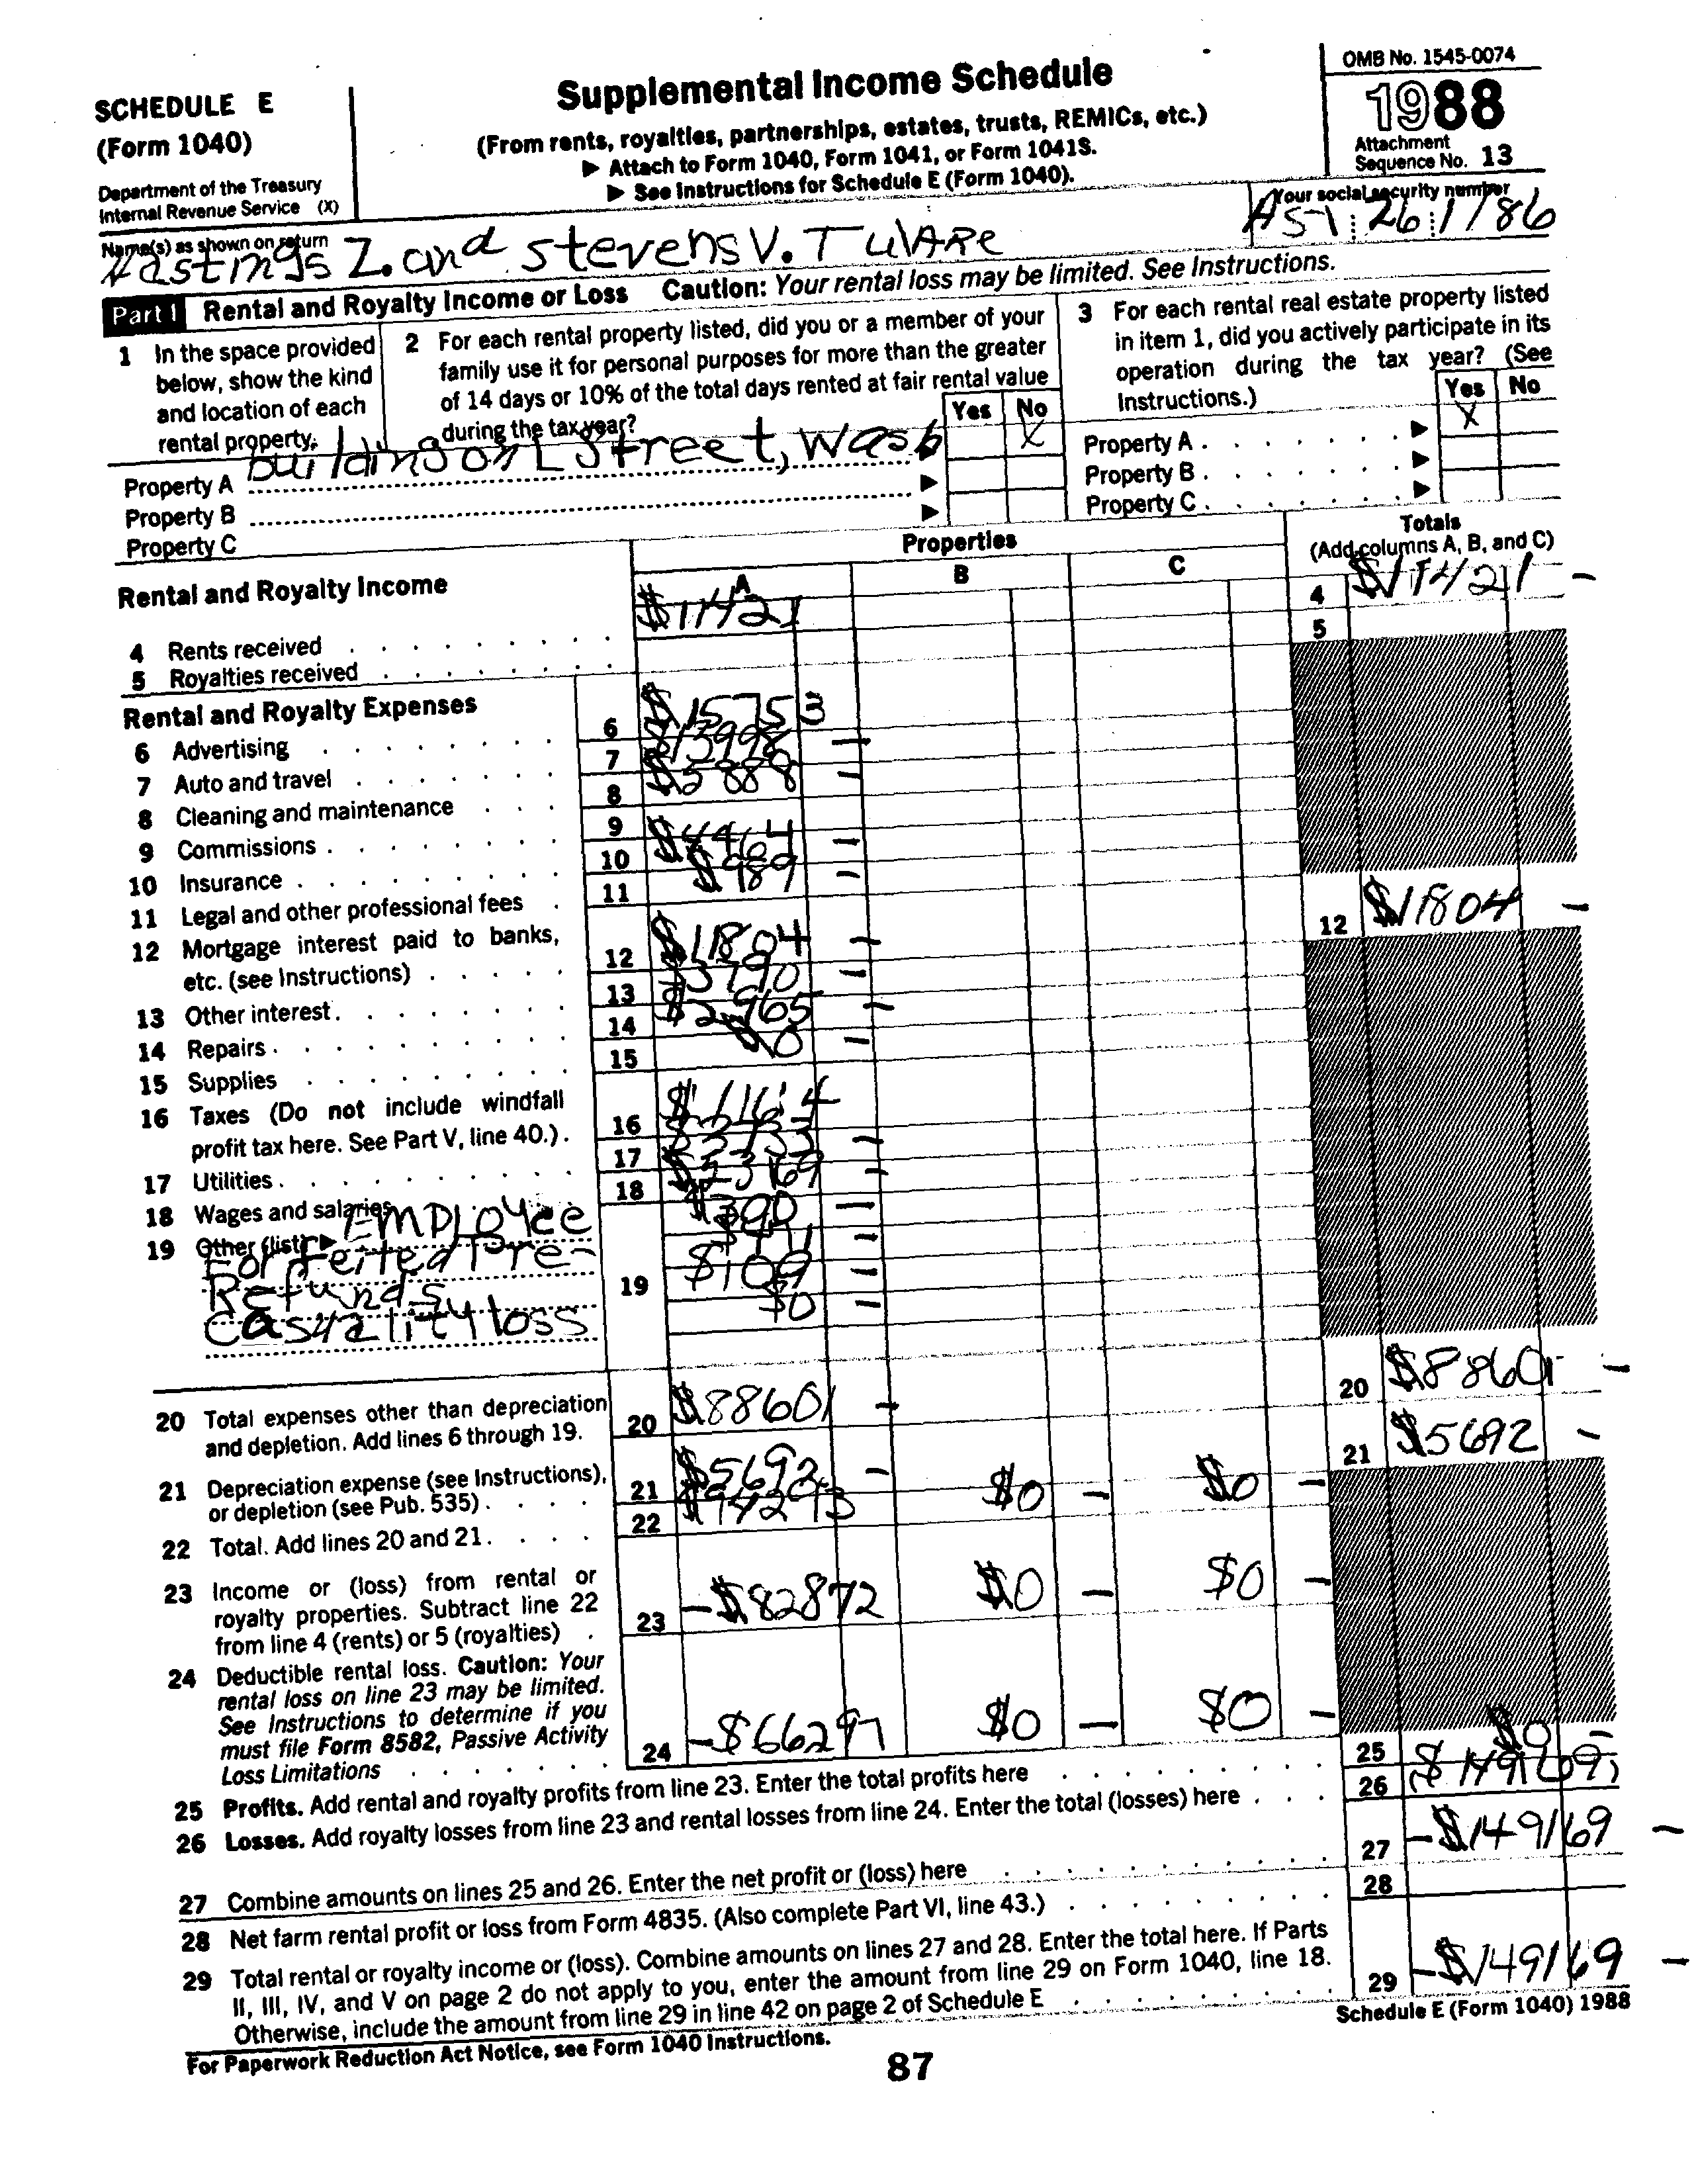 SCHEDULE E
(Form 1040)
Department of the Treasury
Internal Revenue Service (X)
Supplemental Income Schedule
(From rents, royalties, partnerships, estates, trusts, REMICs, etc.)
▶ Attach to Form 1040, Form 1041, or Form 1041S.
▶ See Instructions for Schedule E (Form 1040).
OMB No. 1545-0074
1988
Attachment
Sequence No. 13
Name(s) as shown on return
Hastings Z. and Stevens V. Tulare
Your social security number
Part I Rental and Royalty Income or Loss Caution: Your rental loss may be limited. See Instructions.
1 In the space provided
below, show the kind
and location of each
rental property:
2 For each rental property listed, did you or a member of your
family use it for personal purposes for more than the greater
of 14 days or 10% of the total days rented at fair rental value
during the tax year?
Yes No
X
3 For each rental real estate property listed
in item 1, did you actively participate in its
operation during the tax year? (See
Instructions.)
Yes No
Property A X
Property B
Property C
Property A building on L Street, Wash
Property B
Property C
Properties
A B C
Totals
(Add columns A, B, and C)
Rental and Royalty Income
4 Rents received $11421 4 $11421 -
5 Royalties received 5
Rental and Royalty Expenses
6 Advertising 6 $15753
7 Auto and travel 7 $13998 -
8 Cleaning and maintenance 8 -
9 Commissions 9
10 Insurance 10 $4464 -
11 Legal and other professional fees 11 $989 -
12 Mortgage interest paid to banks,
etc. (see Instructions) 12 $11804 - 12 $11804 -
13 Other interest 13 -
14 Repairs 14 $2965 -
15 Supplies 15 -
16 Taxes (Do not include windfall
profit tax here. See Part V, line 40.) 16
17 Utilities 17 -
18 Wages and salaries 18 -
19 Other (list) ▶ Employee
Forfeited Pre-
Refunds 19 $109 -
Casualty loss $0 -
20 Total expenses other than depreciation
and depletion. Add lines 6 through 19. 20 $88601 - 20 $88601 -
21 Depreciation expense (see Instructions),
or depletion (see Pub. 535) 21 $5692 - $0 - $0 - 21 $5692 -
22 Total. Add lines 20 and 21. 22 $94293
23 Income or (loss) from rental or
royalty properties. Subtract line 22
from line 4 (rents) or 5 (royalties) 23 -$82872 $0 - $0 -
24 Deductible rental loss. Caution: Your
rental loss on line 23 may be limited.
See Instructions to determine if you
must file Form 8582, Passive Activity
Loss Limitations 24 -$66297 $0 - $0 -
25 Profits. Add rental and royalty profits from line 23. Enter the total profits here 25 $0 -
26 Losses. Add royalty losses from line 23 and rental losses from line 24. Enter the total (losses) here 26 ($149169)
27 Combine amounts on lines 25 and 26. Enter the net profit or (loss) here 27 -$149169 -
28 Net farm rental profit or loss from Form 4835. (Also complete Part VI, line 43.) 28
29 Total rental or royalty income or (loss). Combine amounts on lines 27 and 28. Enter the total here. If Parts
II, III, IV, and V on page 2 do not apply to you, enter the amount from line 29 on Form 1040, line 18.
Otherwise, include the amount from line 29 in line 42 on page 2 of Schedule E 29 -$149169 -
For Paperwork Reduction Act Notice, see Form 1040 Instructions.
Schedule E (Form 1040) 1988
87